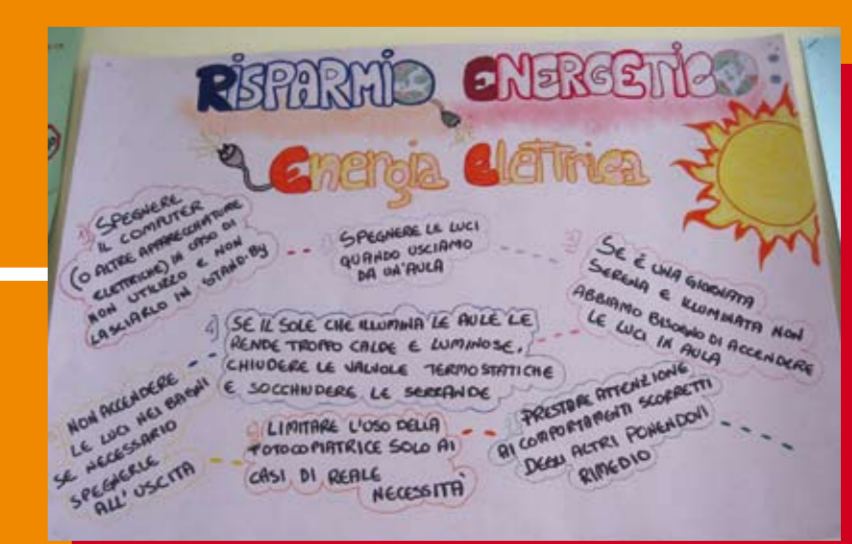 RISPARMIO ENERGETICO
ENERGIA ELETTRICA
1) SPEGNERE
IL COMPUTER
(O ALTRE APPARECCHIATURE
ELETTRICHE) IN CASO DI
NON UTILIZZO E NON
LASCIARLO IN STAND-BY
SPEGNERE LE LUCI
QUANDO USCIAMO
DA UN'AULA
SE È UNA GIORNATA
SERENA E ILLUMINATA NON
ABBIAMO BISOGNO DI ACCENDERE
LE LUCI IN AULA
4) SE IL SOLE CHE ILLUMINA LE AULE LE
RENDE TROPPO CALDE E LUMINOSE,
CHIUDERE LE VALVOLE TERMOSTATICHE
E SOCCHIUDERE LE SERRANDE
NON ACCENDERE
LE LUCI NEI BAGNI
SE NECESSARIO
SPEGNERLE
ALL'USCITA
LIMITARE L'USO DELLA
FOTOCOPIATRICE SOLO AI
CASI DI REALE
NECESSITÀ
PRESTARE ATTENZIONE
AI COMPORTAMENTI SCORRETTI
DEGLI ALTRI PONENDOVI
RIMEDIO